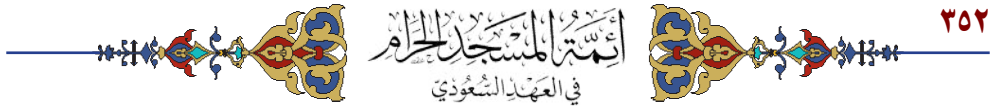 ٣٥٢
أَئِمَّةُ المَسْجِدِ الحَرَامِ
فِي العَهْدِ السُّعُودِيّ